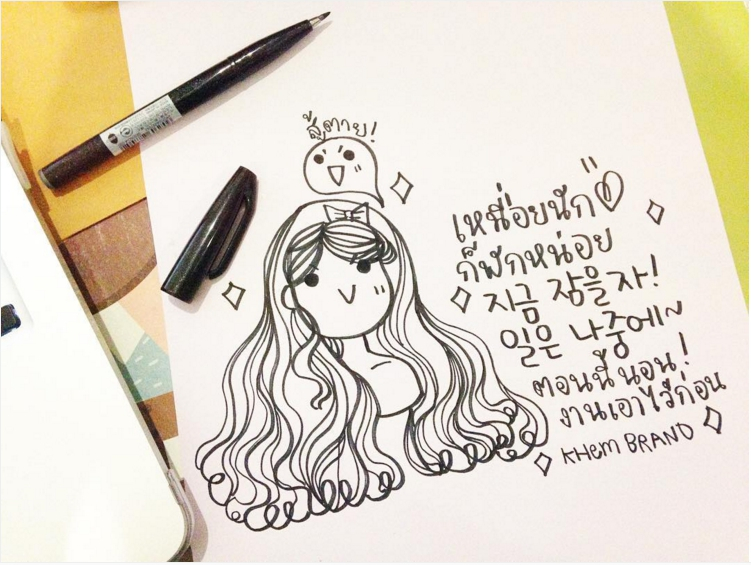 สู้ตาย!
เหนื่อยนัก
ก็พักหน่อย
지금 잠을 자!
일은 나중에~
ตอนนี้นอน!
งานเอาไว้ก่อน
KHEM BRAND